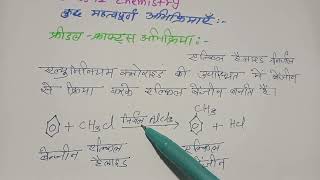 12 Chemistry
कुछ महत्वपूर्ण अभिक्रियाएँ:-
फ्रीडल-क्राफ्ट्स अभिक्रिया:-
एल्युमिनियम क्लोराइड की उपस्थिति में बेन्जीन
से क्रिया करके एल्किल बेंजीन बनाते हैं।
CH3
+ CH3Cl निर्जल AlCl3 + Hcl
बेन्जीन एल्किल हैलाइड एल्किल बेंजीन